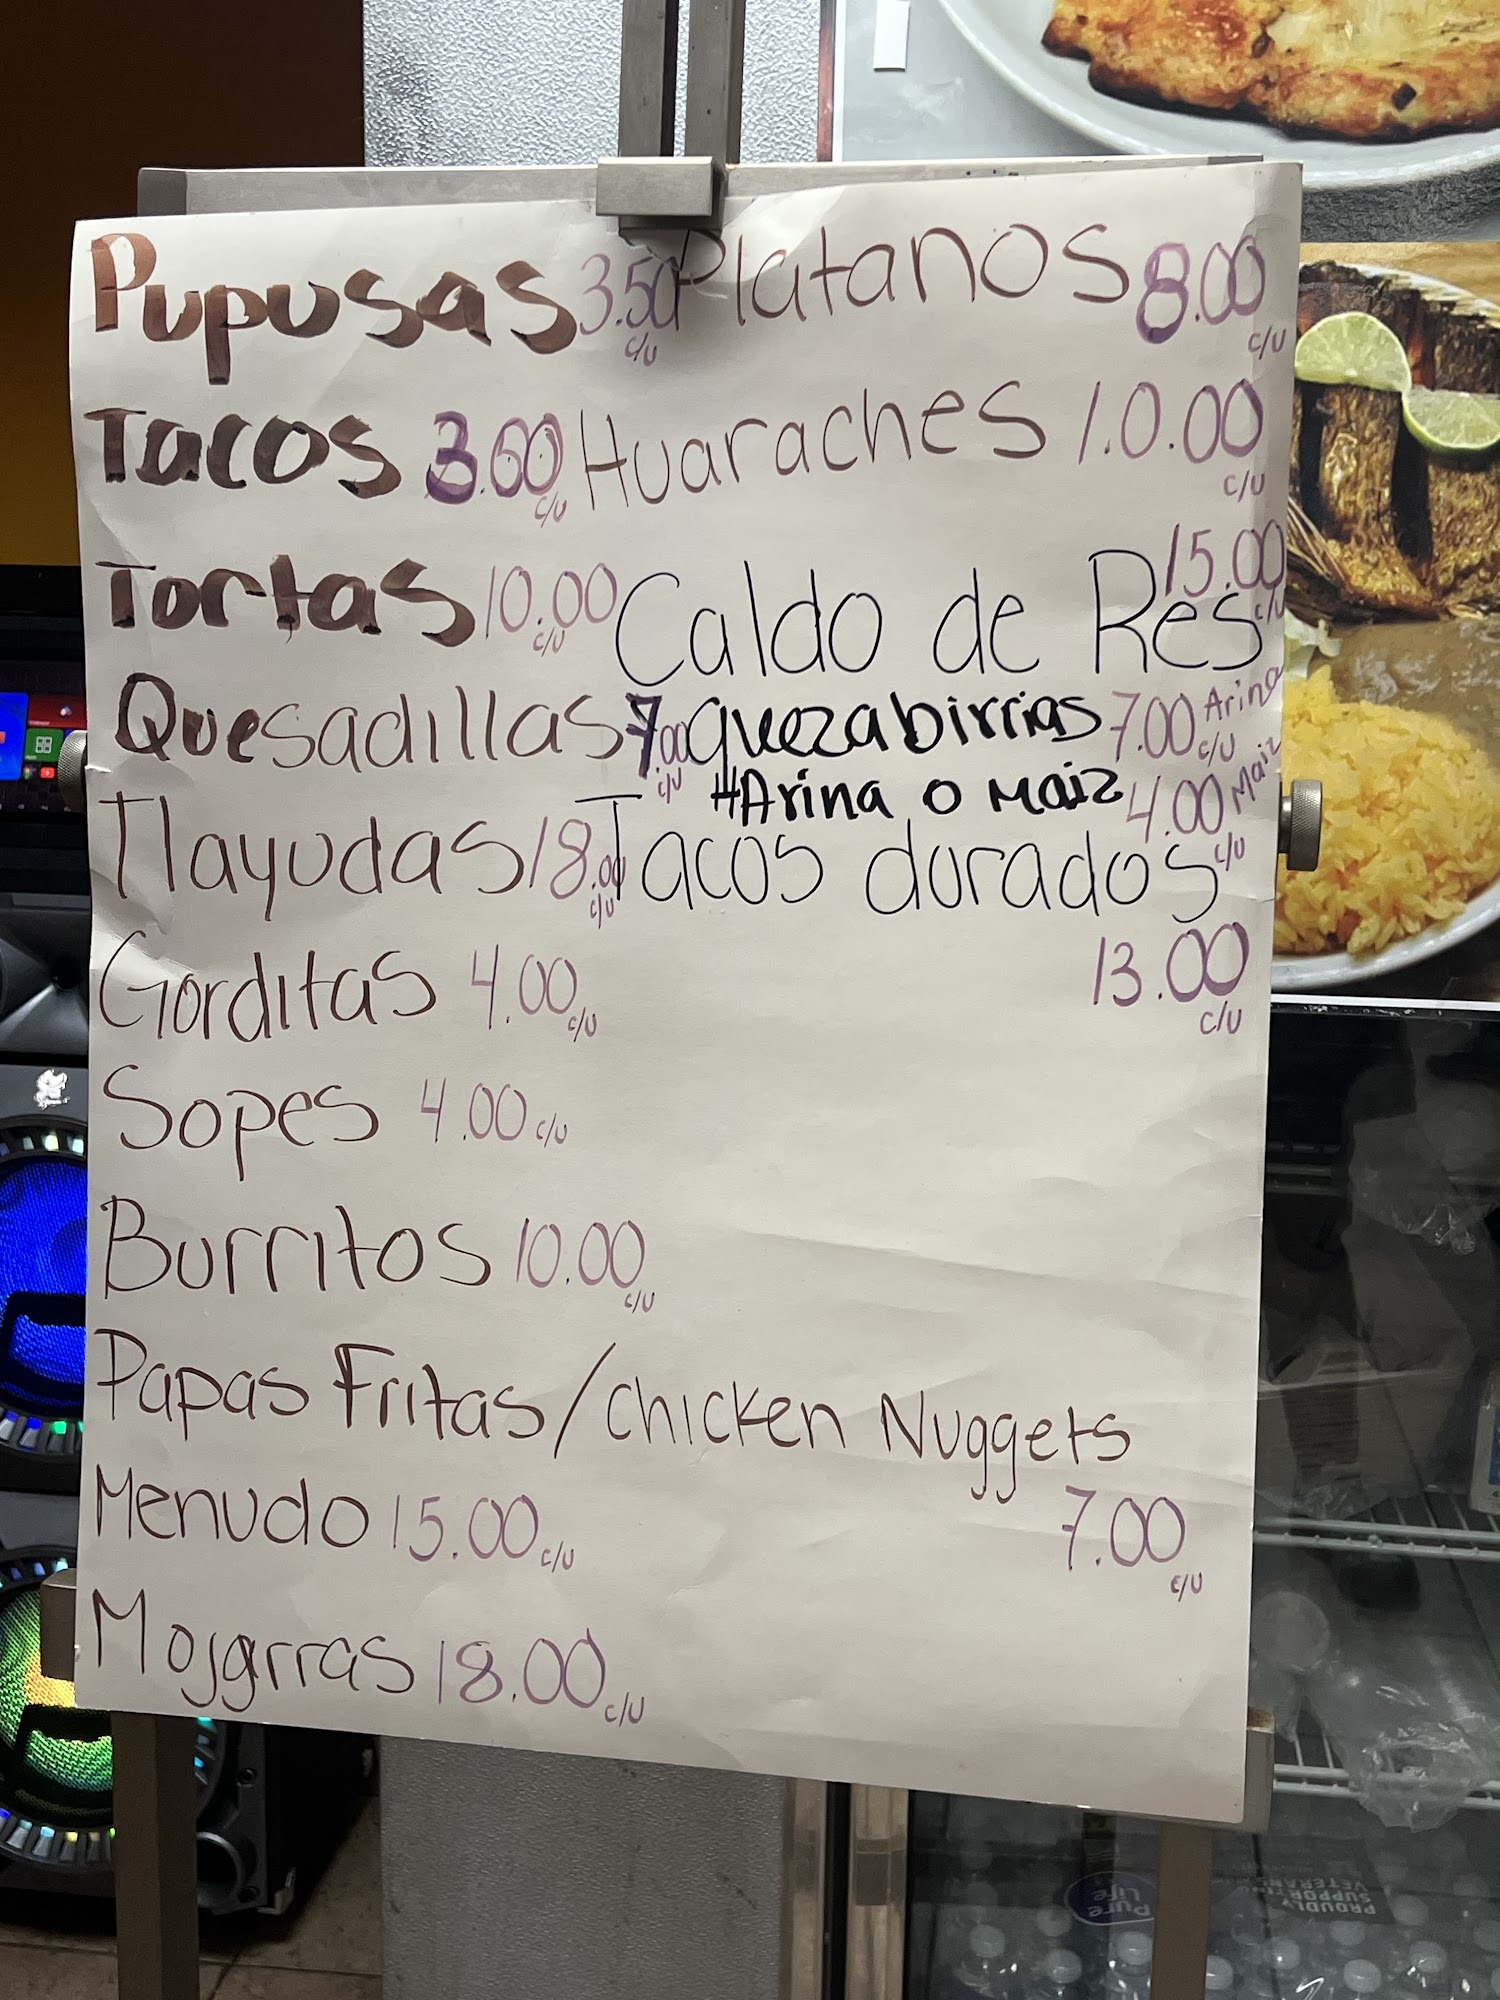 Pupusas 3.50 c/u Platanos 8.00 c/u
Tacos 3.50 c/u Huaraches 1.0.00 c/u
Tortas 10.00 c/u Caldo de Res 15.00 c/u
Quesadillas 7.00 c/u quezabirrias 7.00 c/u Arina
#Arina o Maiz 4.00 c/u Maiz
Tlayudas 18.00 c/u Tacos dorados
13.00 c/u
Gorditas 4.00 c/u
Sopes 4.00 c/u
Burritos 10.00 c/u
Papas Fritas/chicken Nuggets
7.00 c/u
Menudo 15.00 c/u
Mojarras 18.00 c/u
Pure Life
PROUDLY
SUPPORTING
VETERANS